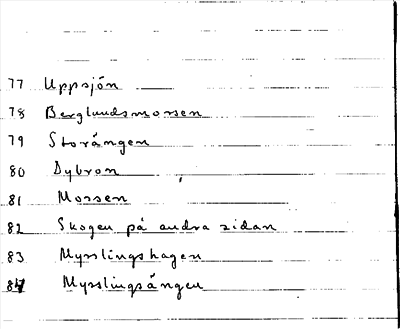 77 Uppsjön
78 Berglundsmorsen
79 Storängen
80 Dybron
81 Morsen
82 Skogen på andra sidan
83 Mysslingshagen
84 Mysslingsängen